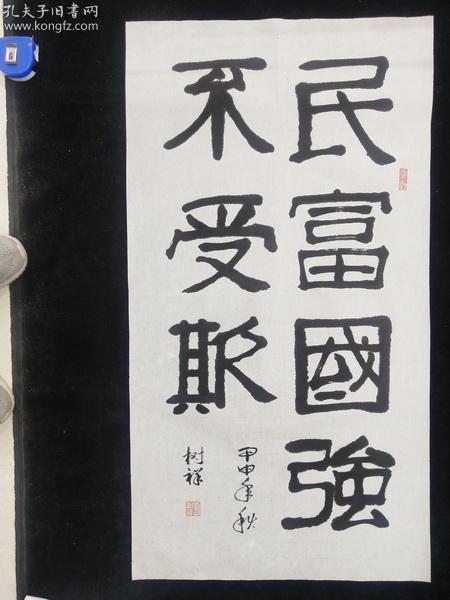 孔夫子旧书网
www.kongfz.com
民富國強
不受欺
甲申年秋
树祥